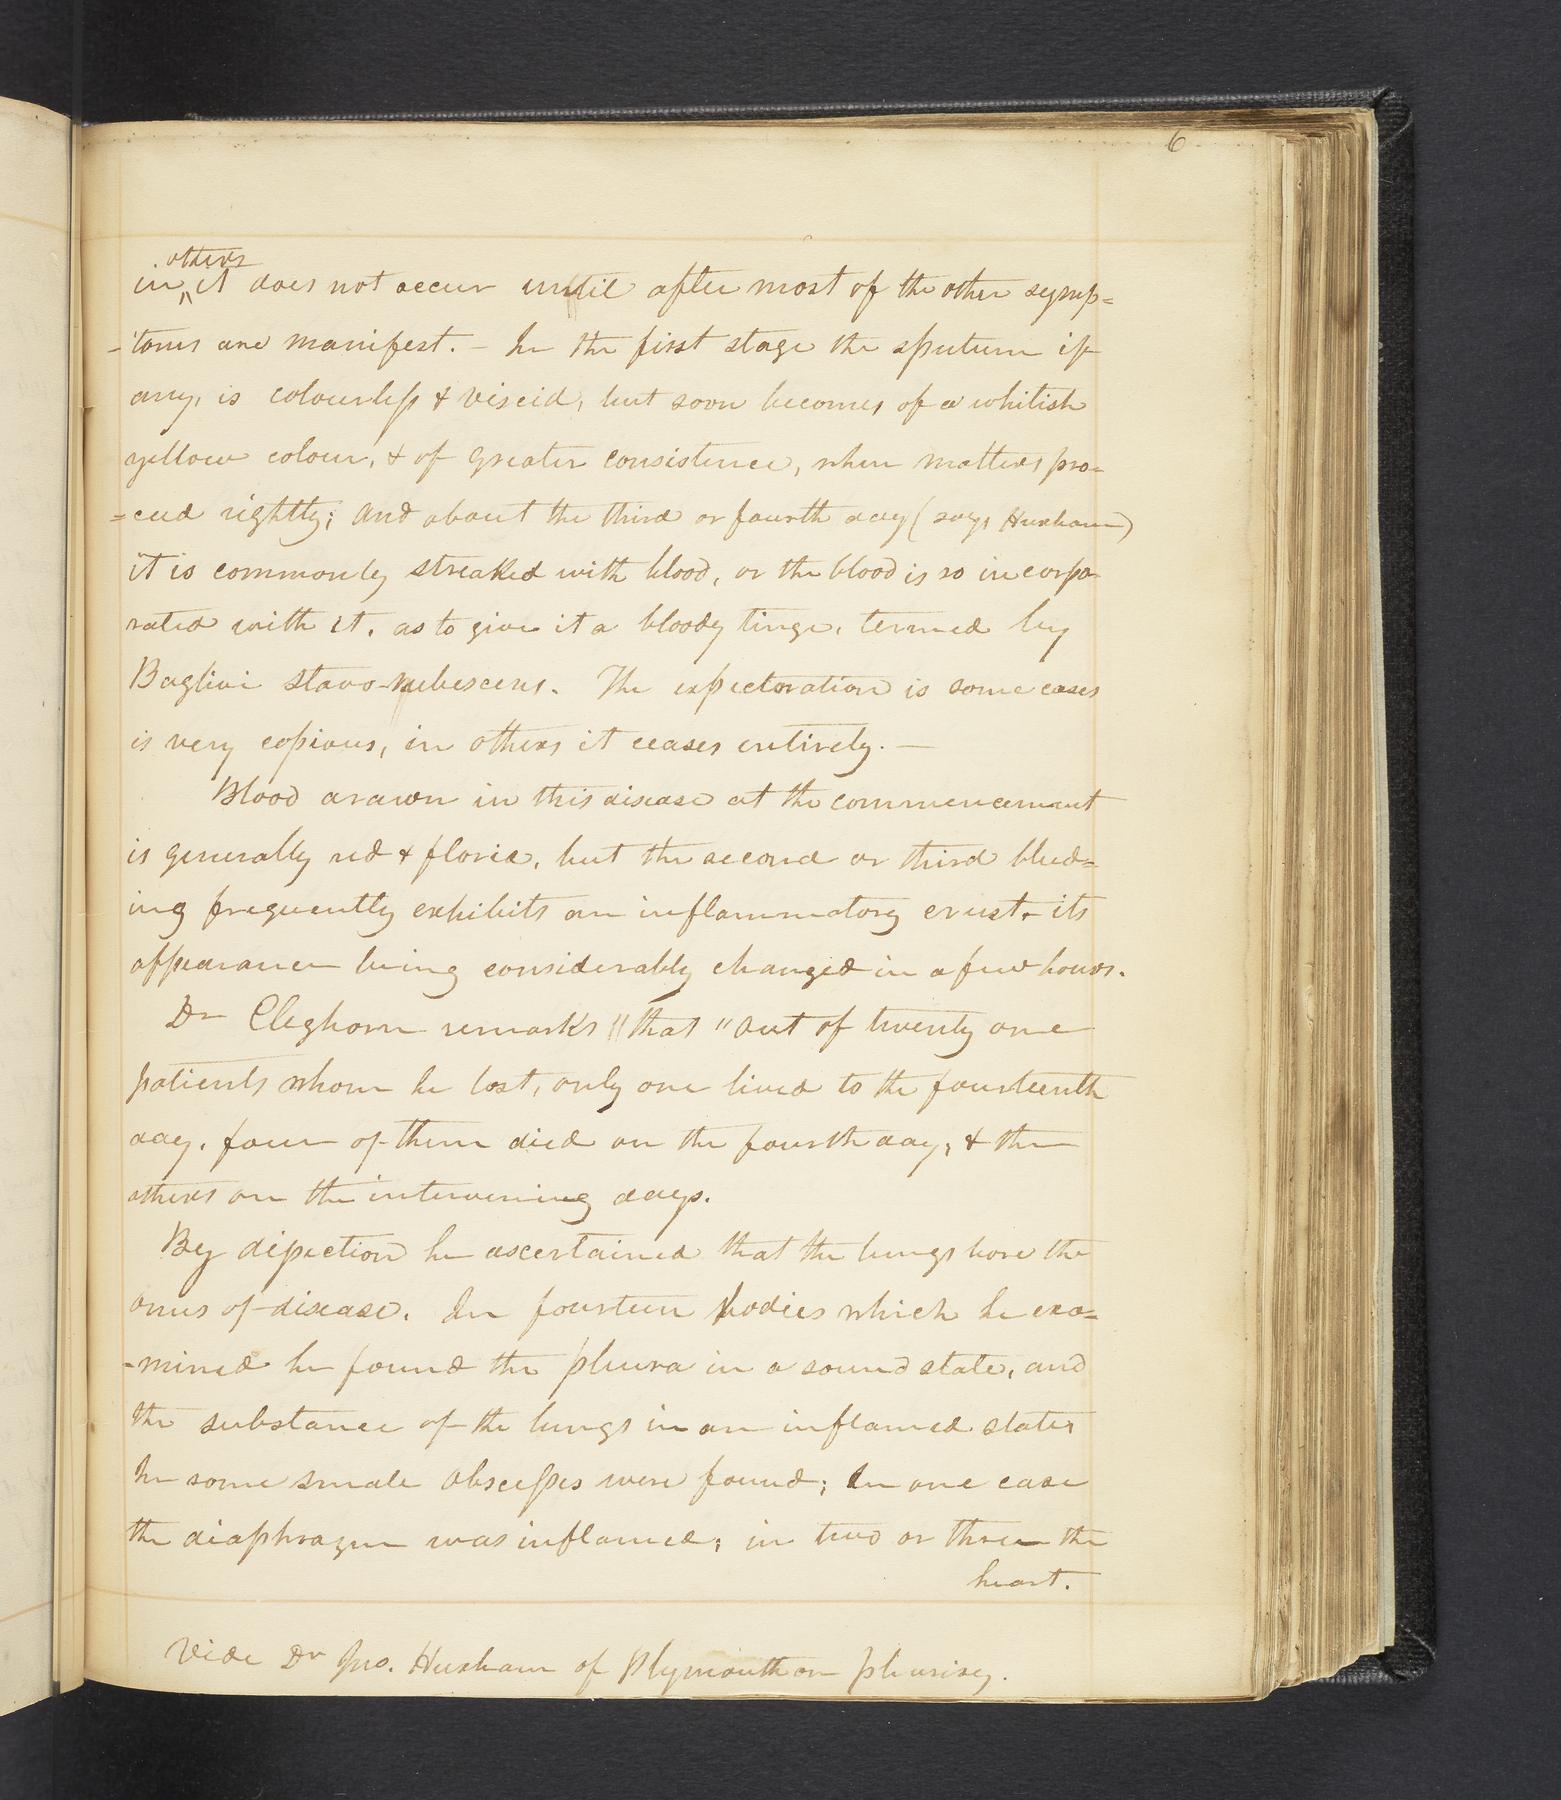 6
others
in ^ it does not occur until after most of the other symp=
-toms are manifest. - In the first stage the sputum if
any, is colourless & viscid, but soon becomes of a whitish
yellow colour, & of greater consistence, when matters pro=
=ceed rightly; and about the third or fourth day (says Huxham)
it is commonly streaked with blood, or the blood is so incorpo-
rated with it, as to give it a bloody tinge, termed by
Baglivi flavo-rubescens. The expectoration is some cases
is very copious, in others it ceases entirely. —
Blood drawn in this disease at the commencement
is generally red & florid, but the second or third bleed=
ing frequently exhibits an inflammatory crust, its
appearance being considerably changed in a few hours.
Dr Cleghorn remarks || that "out of twenty one
patients whom he lost, only one lived to the fourteenth
day, four of them died on the fourth day, & the
others on the intervening days.
By dissection he ascertained that the lungs bore the
onus of disease. In fourteen bodies which he exa=
-mined he found the pleura in a sound state, and
the substance of the lungs in an inflamed state,
In some small abscesses were found; In one case
the diaphragm was inflamed; in two or three the
heart.
Vide Dr Jno. Huxham of Plymouth on pleurisy.